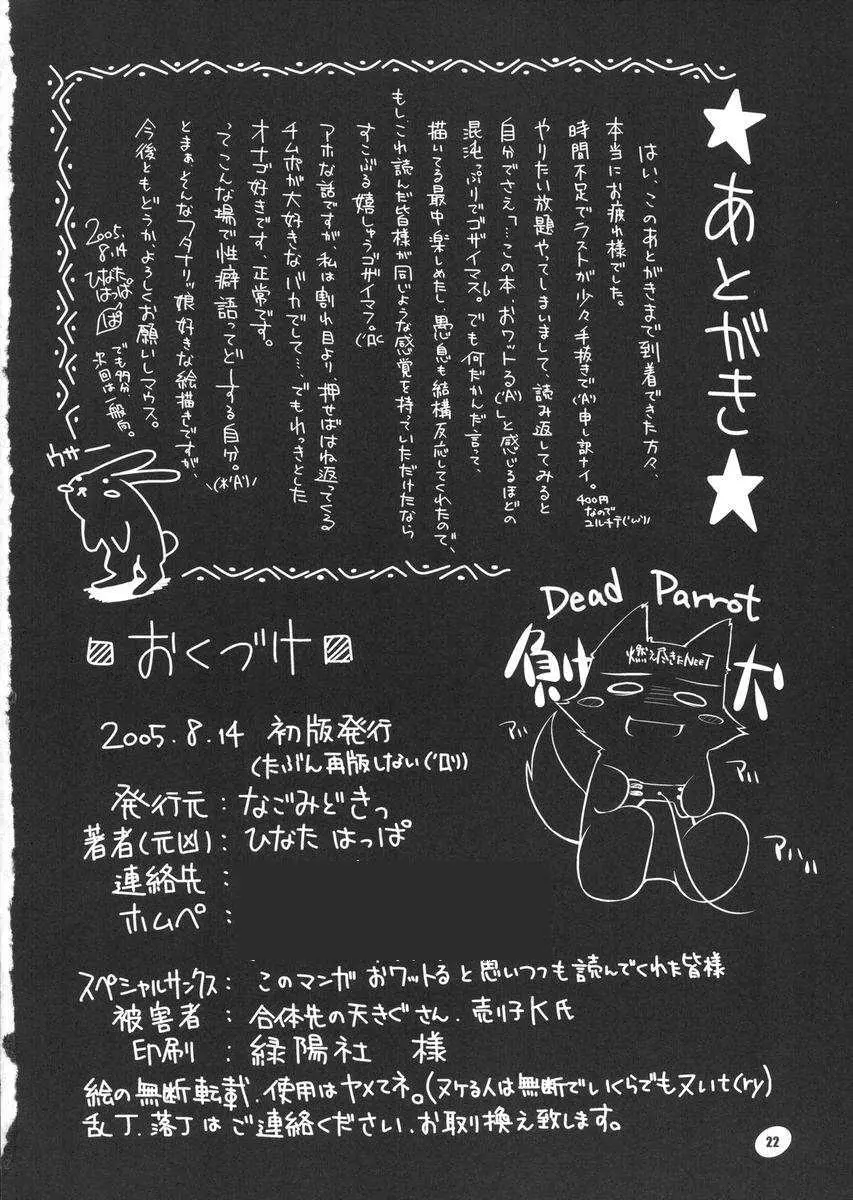 ★あとがき★
はい、このあとがきまで到着できた方々、
本当にお疲れ様でした。
時間不足でラストが少々手抜きで('A`)申し訳ナイ。
400円
なので
ユルチテ('ω`)
やりたい放題やってしまいまして、読み返してみると
自分でさえ「…この本、おワットる('A`)」と感じるほどの
混沌っぷりでゴザイマス。でも何だかんだ言って、
描いてる最中楽しめたし愚息も結構反応してくれたので、
もしこれ読んだ皆様が同じような感覚を持っていただけたなら
すこぶる嬉しゅうゴザイマフ。
アホな話ですが、私は割れ目より、押せばはね返ってくる
チムポが大好きなバカでして…、でもれっきとした
オナゴ好きです、正常です。
ってこんな場で性癖語ってどーする自分。
とまぁそんなフタナリッ娘好きな絵描きですが、
今後ともどうか、よろしくお願いしマウス。
2005.
8.14
ひなた
はっぱ
ぱ
でも多分
次回は一般向。
ウサー
Dead Parrot
負け犬
燃え尽きたNEET
アハ
アハ
アハ
おくづけ
2005.8.14 初版発行
(たぶん再版しない('ロリ)
発行元：なごみどきっ
著者(元凶)：ひなた はっぱ
連絡先：
ホムペ：
スペシャルサンクス：このマンガ おワットると思いつつも読んでくれた皆様
被害者：合体先の天きぐさん、売り子K氏
印刷：緑陽社 様
絵の無断転載、使用はヤメてネ。(ヌケる人は無断でいくらでもヌいt(ry)
乱丁、落丁はご連絡ください、お取り換え致します。
22